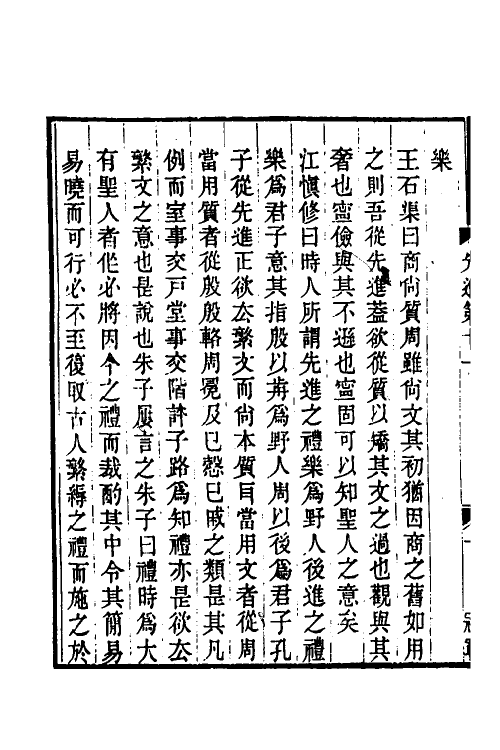 先進第十一
樂
王石渠曰商尙質周雖尙文其初猶因商之舊如用
之則吾從先進蓋欲從質以矯其文之過也觀與其
奢也寗儉與其不遜也寗固可以知聖人之意矣
江愼修曰時人所謂先進之禮樂爲野人後進之禮
樂爲君子意其指殷以前爲野人周以後爲君子孔
子從先進正欲去繁文而尙本質耳當用文者從周
當用質者從殷殷輅周冕及已慤已戚之類是其凡
例而室事交戶堂事交階許子路爲知禮亦是欲去
繁文之意也是說也朱子屢言之朱子曰禮時爲大
有聖人者作必將因今之禮而裁酌其中令其簡易
易曉而可行必不至復取古人繁縟之禮而施之於